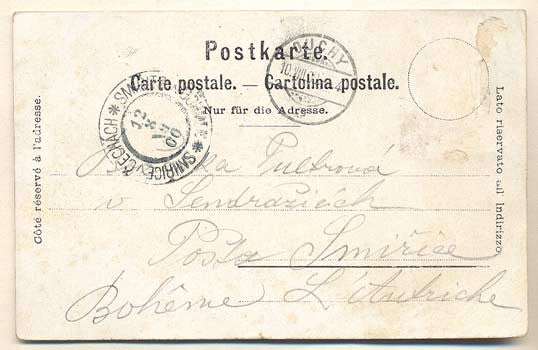 Postkarte.
Carte postale. — Cartolina postale.
Nur für die Adresse.
Côté réservé à l'adresse.
Lato riservato all' Indirizzo
OUCHY
10.VIII
SMIŘICE
12 8 19 00
Pultrová
v Sendražicích
Pošta Smiřice
Bohême L'Autriche